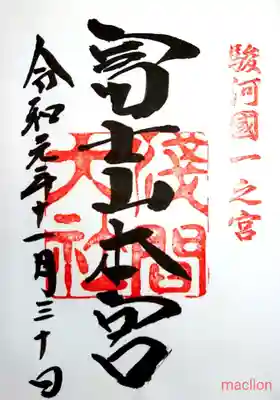 駿河國一之宮
富士山本宮
淺間大社
令和元年十一月三十日
macllon